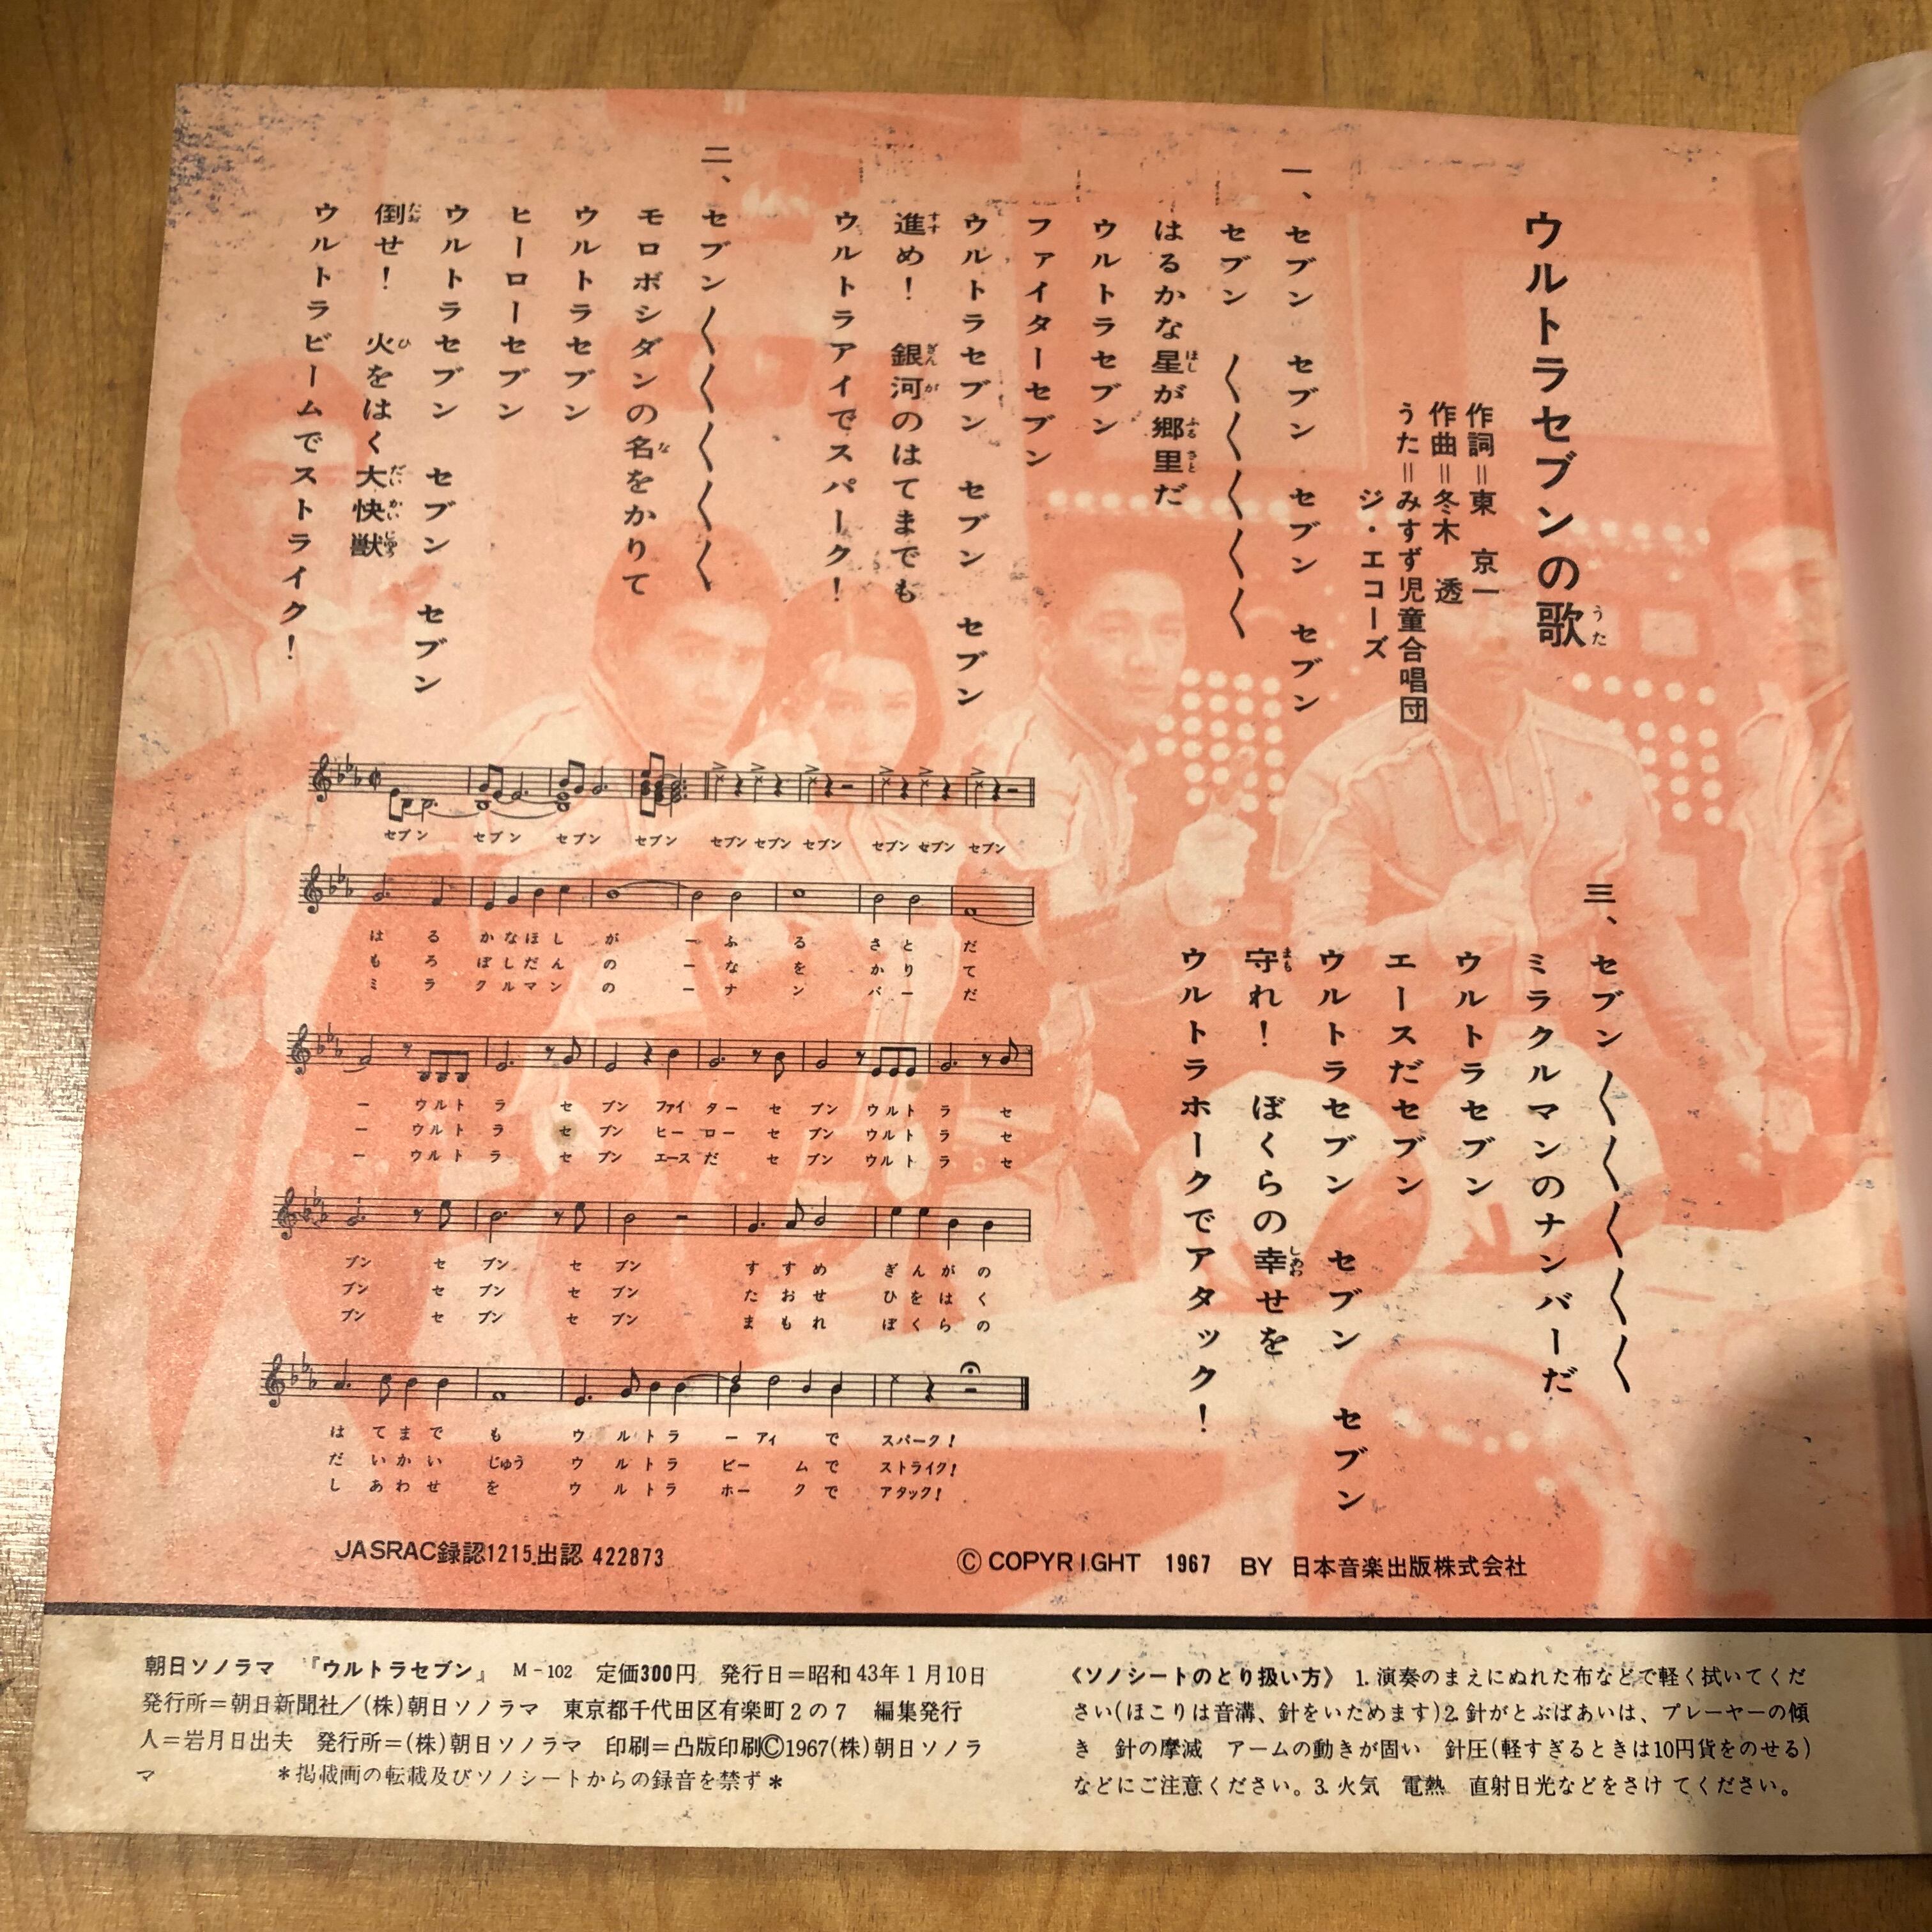 ウルトラセブンの歌
作詞＝東　京一
作曲＝冬木　透
うた＝みすず児童合唱団
ジ・エコーズ
一、セブン　セブン　セブン　セブン
セブン　〱〱〱〱〱
はるかな星が郷里だ
ウルトラセブン
ファイターセブン
ウルトラセブン　セブン　セブン
進め！　銀河のはてまでも
ウルトラアイでスパーク！
二、セブン〱〱〱〱〱
モロボシダンの名をかりて
ウルトラセブン
ヒーローセブン
ウルトラセブン　セブン　セブン
倒せ！　火をはく大快獣
ウルトラビームでストライク！
三、セブン〱〱〱〱〱
ミラクルマンのナンバーだ
ウルトラセブン
エースだセブン
ウルトラセブン　セブン　セブン
守れ！　ぼくらの幸せを
ウルトラホークでアタック！
セブン　セブン　セブン　セブン　セブン　セブン　セブン　セブン　セブン　セブン
はるかなほしがーふるさとだ
もろぼしだんのーなをかりて
ミラクルマンのーナンバーだ
ーウルトラセブンファイターセブンウルトラセ
ーウルトラセブンヒーローセブンウルトラセ
ーウルトラセブンエースだセブンウルトラセ
ブンセブンセブンすすめぎんがの
ブンセブンセブンたおせひをはく
ブンセブンセブンまもれぼくらの
はてまでもウルトラーアイでスパーク！
だいかいじゅうウルトラビームでストライク！
しあわせをウルトラホークでアタック！
JASRAC録認1215出認 422873
© COPYRIGHT 1967 BY 日本音楽出版株式会社
朝日ソノラマ　『ウルトラセブン』　M-102　定価300円　発行日＝昭和43年1月10日
発行所＝朝日新聞社／(株)朝日ソノラマ　東京都千代田区有楽町2の7　編集発行
人＝岩月日出夫　発行所＝(株)朝日ソノラマ　印刷＝凸版印刷©1967(株)朝日ソノラ
マ　＊掲載画の転載及びソノシートからの録音を禁ず＊
《ソノシートのとり扱い方》 1.演奏のまえにぬれた布などで軽く拭いてくだ
さい(ほこりは音溝、針をいためます)2.針がとぶばあいは、プレーヤーの傾
き　針の摩滅　アームの動きが固い　針圧(軽すぎるときは10円貨をのせる)
などにご注意ください。3.火気　電熱　直射日光などをさけてください。